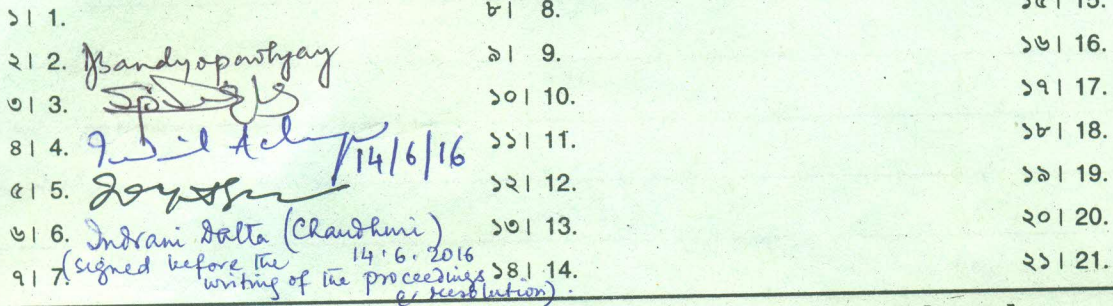 ১। 1.
২। 2. Bandyopadhyay
৩। 3.
৪। 4. 14/6/16
৫। 5.
৬। 6. Indrani Datta (Chaudhuri)
14.6.2016
৭। 7. (signed before the writing of the proceedings & resolution).
৮। 8.
৯। 9.
১০। 10.
১১। 11.
১২। 12.
১৩। 13.
১৪। 14.
১৫। 15.
১৬। 16.
১৭। 17.
১৮। 18.
১৯। 19.
২০। 20.
২১। 21.